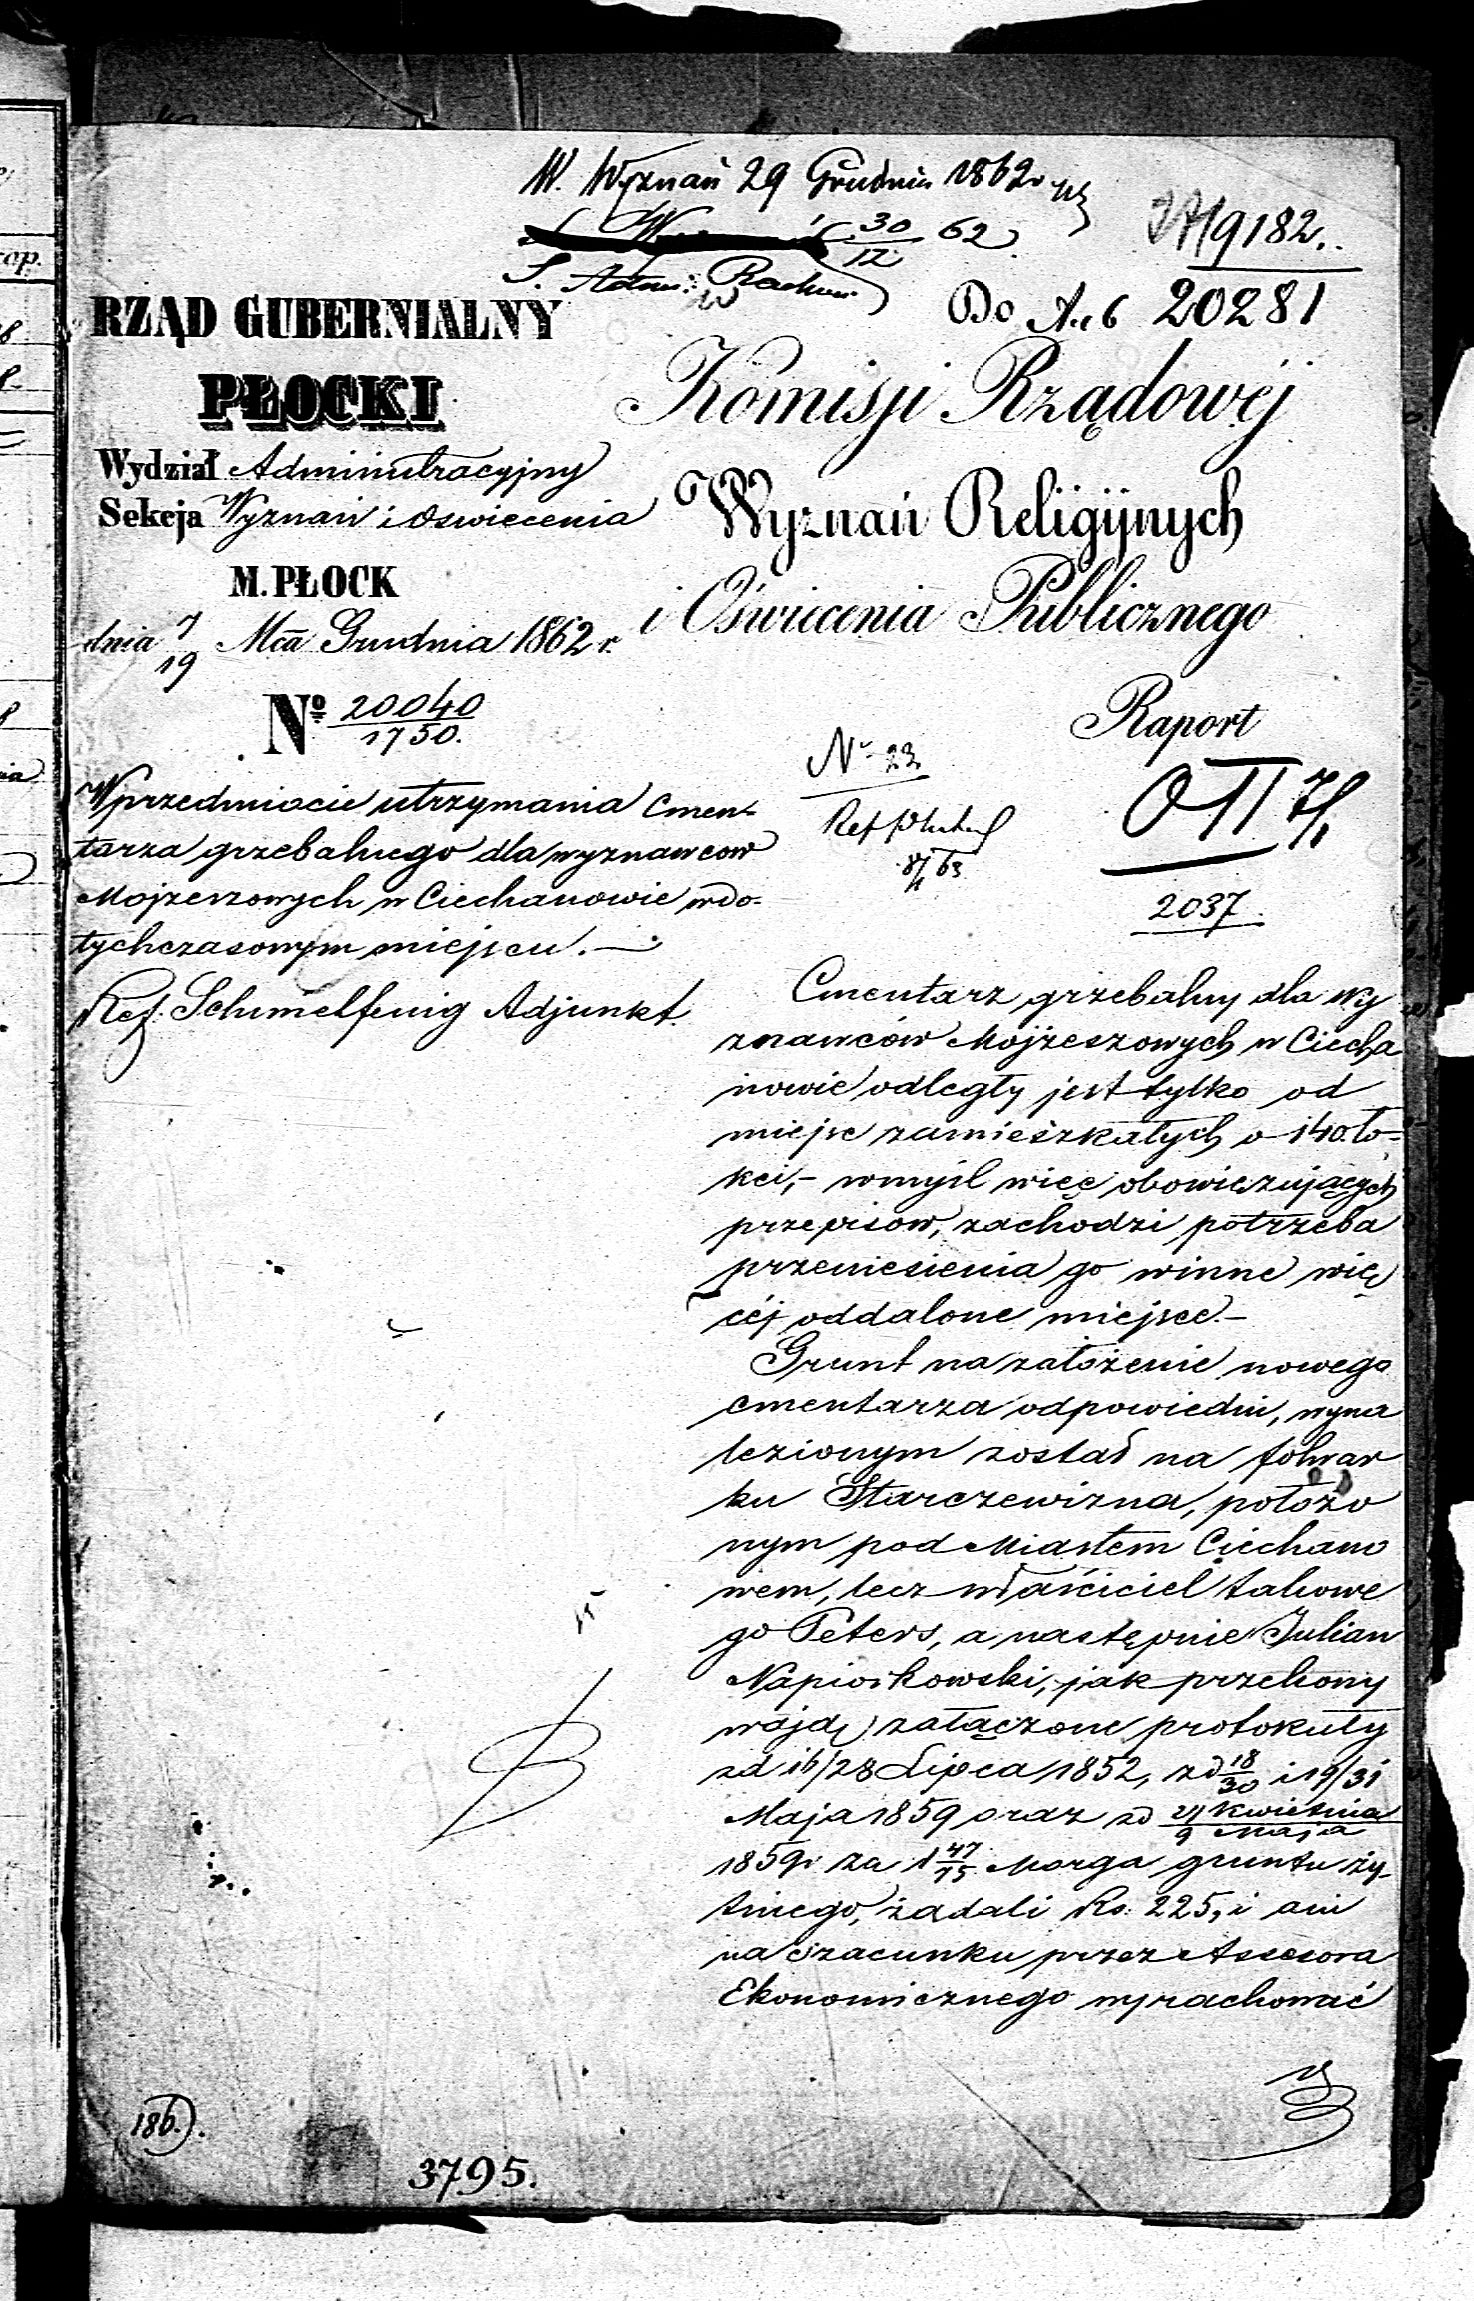 W. Wyznań 29 Grudnia 1862
30/12 62
S. Adm: Rachun
19182.
Do 20281
RZĄD GUBERNIALNY
PŁOCKI
Wydział Administracyjny
Sekcja Wyznań i Oswiecenia
M. PŁOCK
dnia 7/19 Mca Grudnia 1862 r.
Nº 20040/1750.
W przedmiocie utrzymania Cmen-
tarza grzebalnego dla wyznawcow
Mojzeszowych w Ciechanowie w do-
tychczasowym miejscu. —
Ref. Schmelfenig Adjunkt.
Komisji Rządowéj
Wyznań Religijnych
i Oświecenia Publicznego
Raport
N 23
2037
Cmentarz grzebalny dla Wy
znawców Mojżeszowych w Ciecha
nowie odległy jest tylko od
miejsc zamieszkałych o 140 ło-
kci, – w myśl więc obowięzujących
przepisow, zachodzi potrzeba
przeniesienia go w inne wię
céj oddalone miejsce. –
Grunt na założenie nowego
cmentarza odpowiedni, wyna
lezionym został na folwar
ku Starczewizna, położo
nym pod Miastem Ciechano
wem, lecz właściciel takowe
go Peters, a następnie Julian
Napiorkowski, jak przekony
wają załączone protokuły
zd 16/28 Lipca 1852, zd 18/30 i 19/31
Maja 1859 oraz zd 27 Kwietnia/9 Maja
1859r za 1 47/15 Morga gruntu ży-
tniego, żądali Rs. 225, i ani
na szacunku przez Assesora
Ekonomicznego wyrachować
186.
3795.